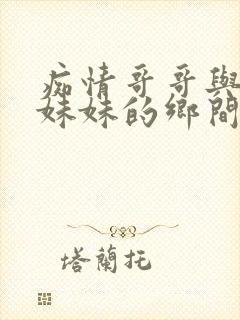 痴情哥哥與
妹妹的鄉間
塔蘭托